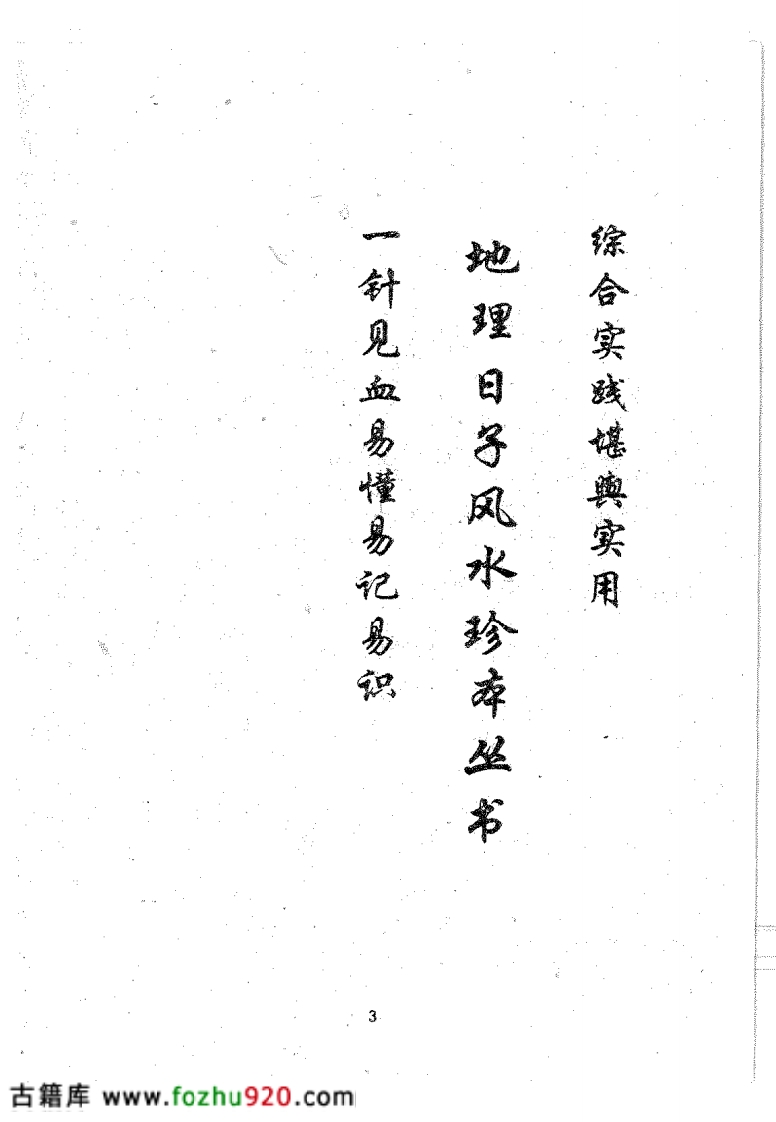 综合实践堪舆实用
地理日子风水珍本丛书
一针见血易懂易记易识
3
古籍库 www.fozhu920.com